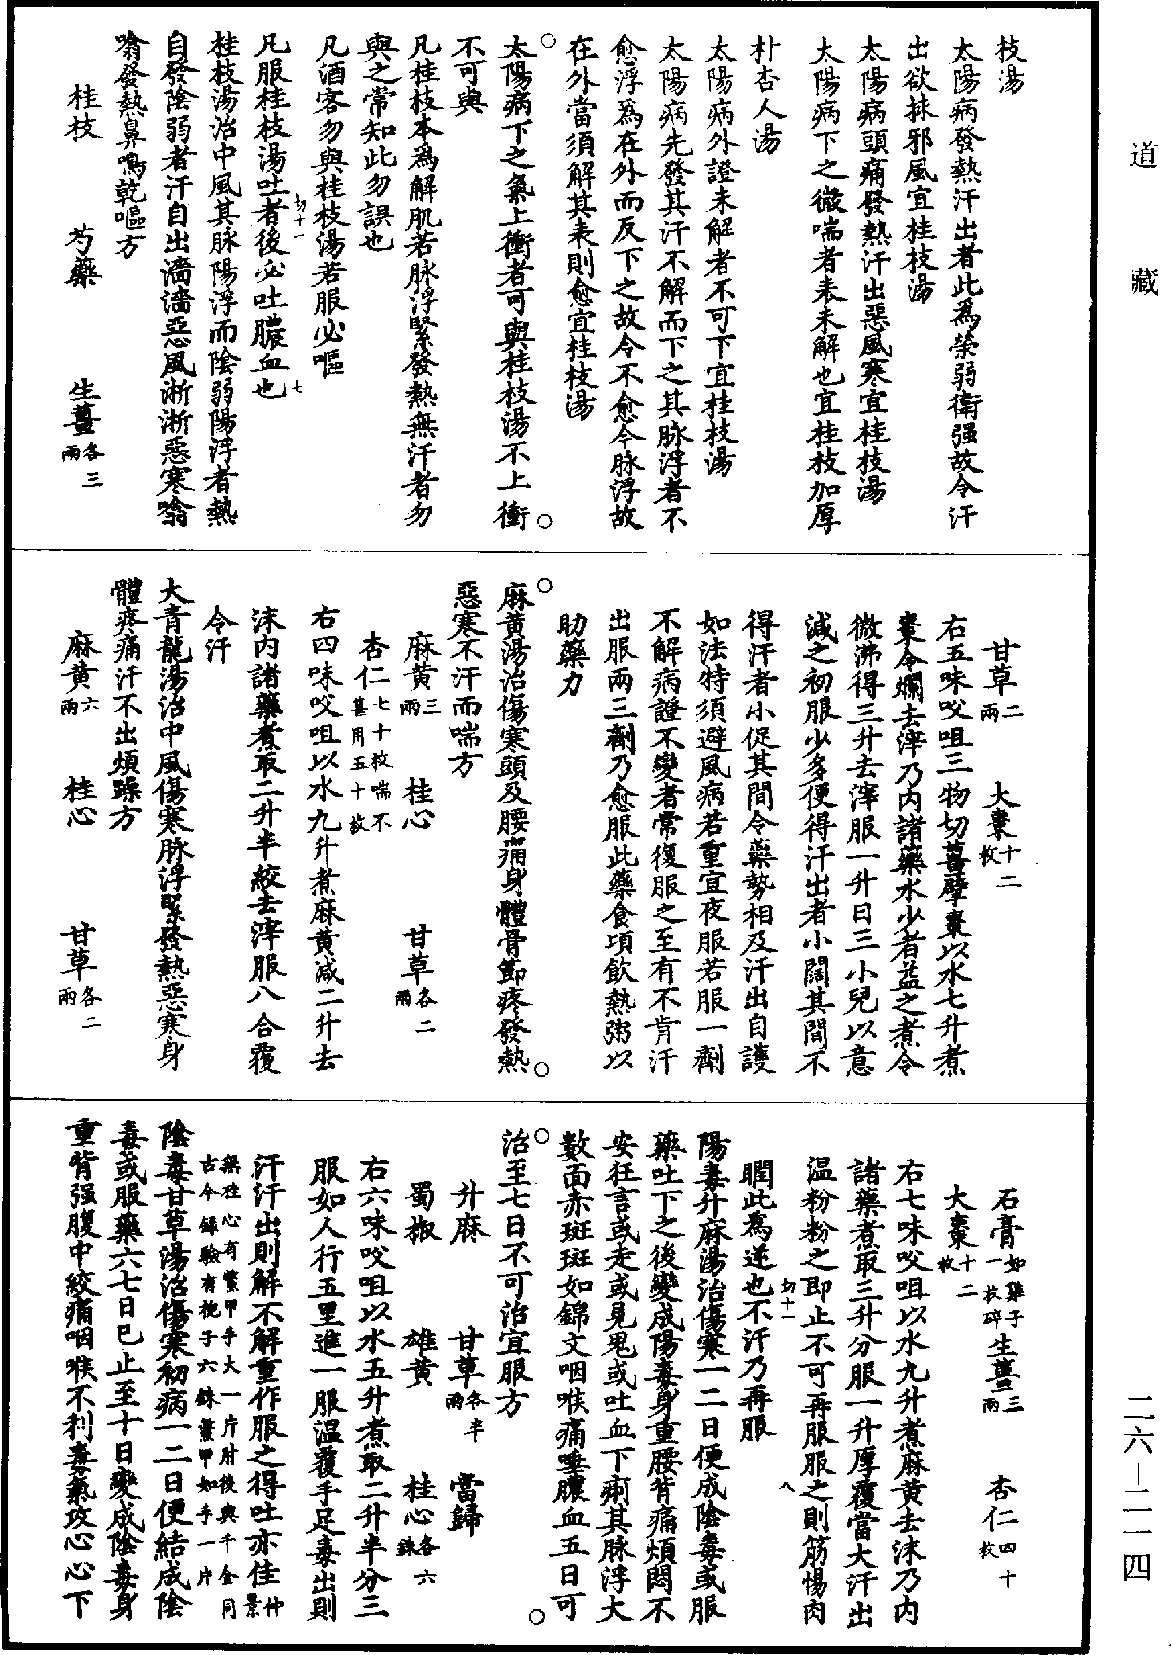 道藏
枝湯
太陽病發熱汗出者此爲榮弱衛强故令汗
出欲捄邪風宜桂枝湯
太陽病頭痛發熱汗出惡風寒宜桂枝湯
太陽病下之微喘者表未解也宜桂枝加厚
朴杏人湯
太陽病外證未解者不可下宜桂枝湯
太陽病先發其汗不解而下之其脉浮者不
愈浮爲在外而反下之故令不愈今脉浮故
在外當須解其表則愈宜桂枝湯
太陽病下之氣上衝者可與桂枝湯不上衝
不可與
凡桂枝本爲解肌若脉浮緊發熱無汗者勿
與之常知此勿誤也
凡酒客勿與桂枝湯若服必嘔
凡服桂枝湯吐者後必吐膿血也
切十一 七
桂枝湯治中風其脉陽浮而陰弱陽浮者熱
自發陰弱者汗自出濇濇惡風淅淅惡寒噏
噏發熱鼻鳴乾嘔方
桂枝 芍藥 生薑各三兩
甘草二兩 大棗十二枚
右五味㕮咀三物切薑擘棗以水七升煮
棗令爛去滓乃内諸藥水少者益之煮令
微沸得三升去滓服一升日三小兒以意
減之初服少多便得汗出者小闊其間不
得汗者小促其間令藥勢相及汗出自護
如法特須避風病若重宜夜服若服一劑
不解病證不變者常復服之至有不肯汗
出服兩三劑乃愈服此藥食頃飲熱粥以
助藥力
麻黄湯治傷寒頭及腰痛身體骨節疼發熱
惡寒不汗而喘方
麻黄三兩 桂心 甘草各二兩
杏仁七十枚喘不甚用五十枚
右四味㕮咀以水九升煮麻黄減二升去
沫内諸藥煮取二升半絞去滓服八合覆
令汗
大青龍湯治中風傷寒脉浮緊發熱惡寒身
體疼痛汗不出煩躁方
麻黄六兩 桂心 甘草各二兩
石膏如雞子一枚碎 生薑三兩 杏仁四十枚
大棗十二枚
右七味㕮咀以水九升煮麻黄去沫乃内
諸藥煮取三升分服一升厚覆當大汗出
温粉粉之即止不可再服服之則筋惕肉
瞤此爲逆也不汗乃再服
切十一 八
陽毒升麻湯治傷寒一二日便成陰毒或服
藥吐下之後變成陽毒身重腰背痛煩悶不
安狂言或走或見鬼或吐血下痢其脉浮大
數面赤斑斑如錦文咽喉痛唾膿血五日可
治至七日不可治宜服方
升麻 甘草各半兩 當歸
蜀椒 雄黄 桂心各六銖
右六味㕮咀以水五升煮取二升半分三
服如人行五里進一服温覆手足毒出則
汗汗出則解不解重作服之得吐亦佳仲景
藥桂心有鱉甲手大一片肘後與千金同
古今録驗有梔子六銖鱉甲如手一片
陰毒甘草湯治傷寒初病一二日便結成陰
毒或服藥六七日已止至十日變成陰毒身
重背强腹中絞痛咽喉不利毒氣攻心心下
二六—二一四